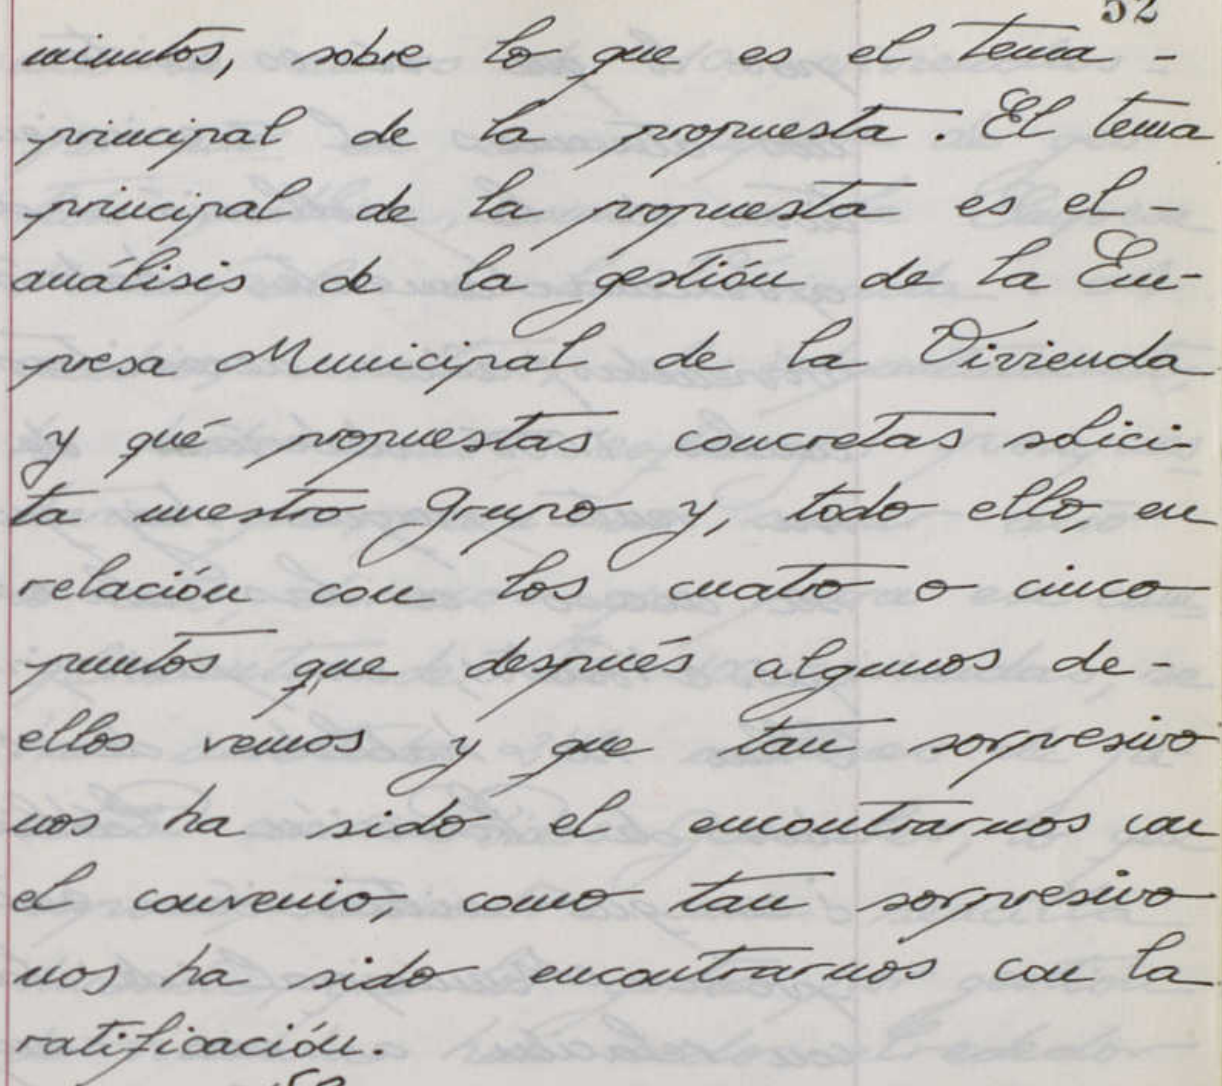 52
minutos, sobre lo que es el tema -
principal de la propuesta. El tema
principal de la propuesta es el -
análisis de la gestión de la Em-
presa Municipal de la Vivienda
y qué propuestas concretas solici-
ta nuestro Grupo y, todo ello, en
relación con los cuatro o cinco
puntos que después algunos de -
ellos vemos y que tan sorpresivo
nos ha sido el encontrarnos con
el convenio, como tan sorpresivo
nos ha sido encontrarnos con la
ratificación.